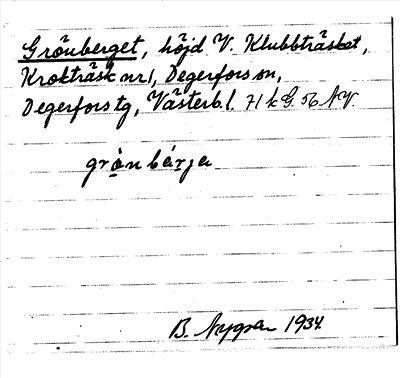 Grönberget, höjd V. Klubbträsket,
Krokträsk nr 1, Degerfors sn,
Degerfors tg, Västerb. l. 71 k G. 56 NV.
grò̤n bárja
B. Nygren 1934.